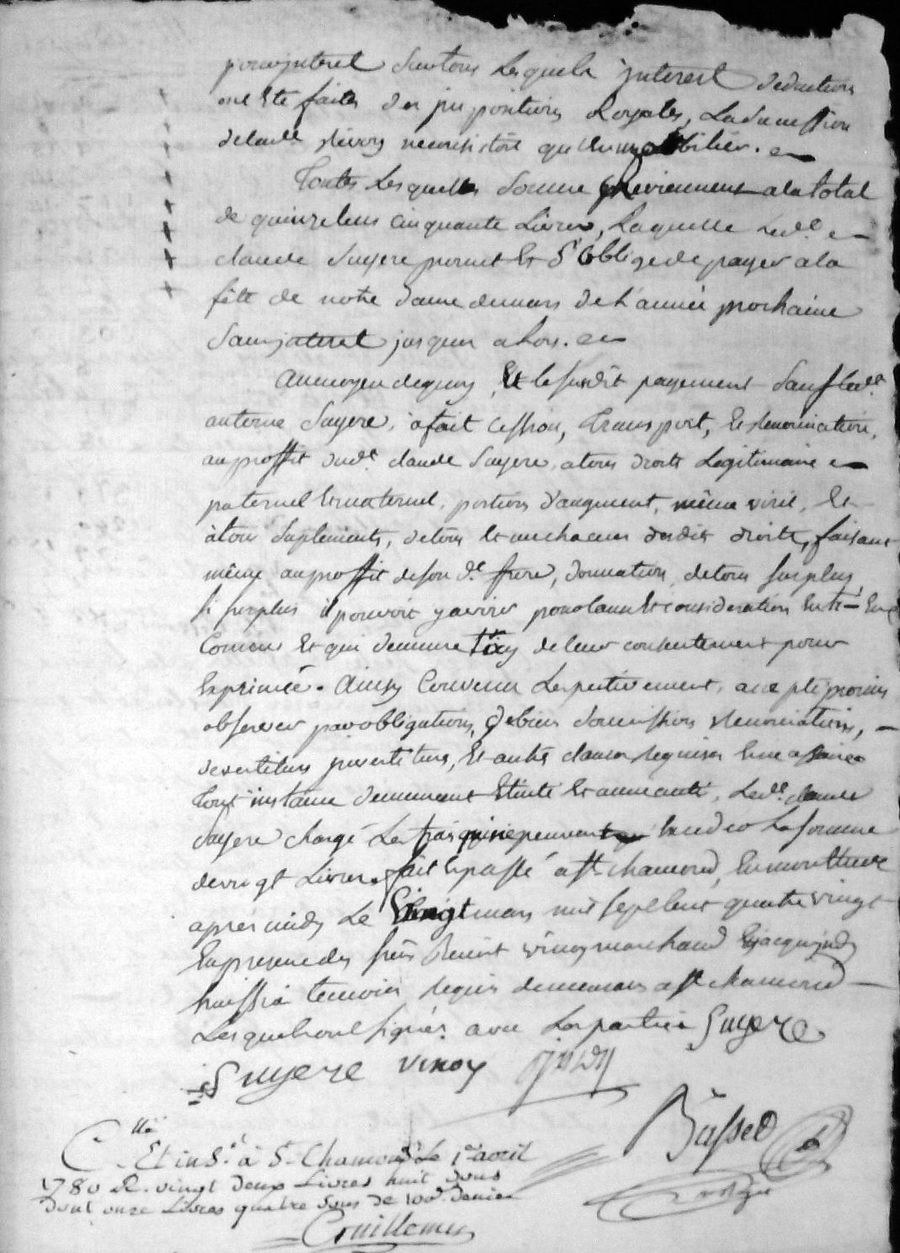 pour interet sur tous lesquels interest deductions
ont été faites des impositions Royales, la succession
de lad.e n'ecoristoit qu'en mobilier.
Toutes Lesquelles somme Reviennent a la total
de quinze cens cinquante Livres, Laquelle led.
claude Suyere promet Et S'Oblige de payer a la
fête de notre dame de mars de L'année prochaine
sans interet jusques alhors.
Au moyen de quoy Et le susdit payement sauf led.t
antoine Suyere, a fait Cession, Transport, Et Renonciation,
au proffit dud.t claude Suyere, a tous droits Legitimaire
paternel Et maternel, portion d'augment, même viril, Et
a tous suplements, de tous Et un chacun desdits droits, faisant
même au proffit de son d.t frere, donnation, de tous surplus,
si surplus il pouvoit y avoir pour
Et qui demeure de leur consentement pour
Exprimée. Ainsy Convenu Respectivement, accepté promis
observer par obligations, de biens soumissions Renonciations,
Et autres clauses Requises
Toute instance demeurant Eteinte Et aneantie, Led.t claude
Suyere chargé Les frais qui ne peuvent exceder La somme
de vingt Livres. fait Et passé a St chamond, En mon Etude
apres midy Le Vingt mars mil sept cent quatre vingt
En presence des srs Benoit vinoy marchand Et jacques
huissier temoins Requis demeurans a St chamond
Lesquels ont signés avec Les parties Suyere
Suyere vinoy
Basset
C.llé Et ins.é à St Chamond Le 1er avril
1780 R. vingt deux Livres huit sous
dont onze Livres quatre sous de 100e denier